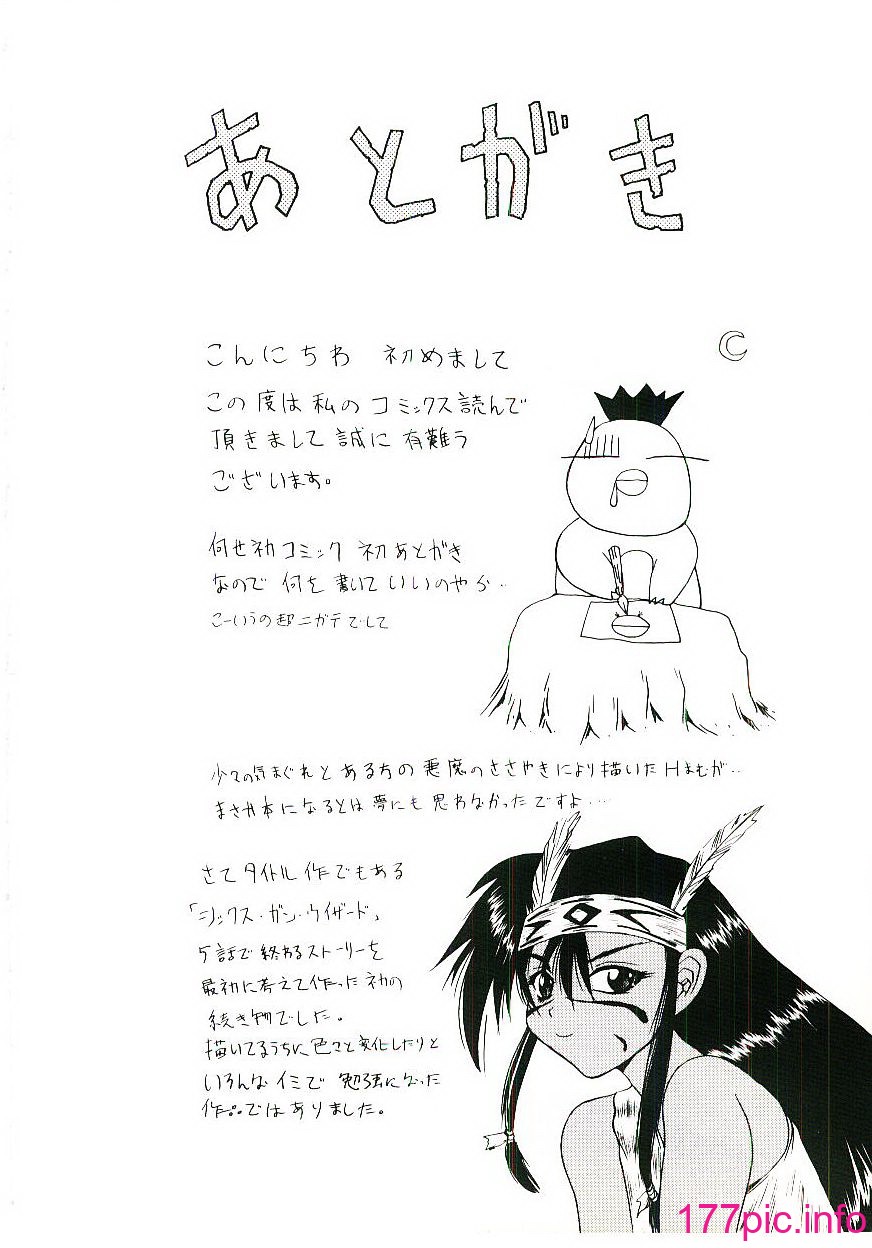 あとがき
こんにちわ 初めまして
この度は私のコミックス読んで
頂きまして誠に有難う
ございます。
何せ初コミック 初あとがき
なので何を書いていいのやら‥
こーいうの超ニガテでして
少々の気まぐれとある方の悪魔のささやきにより描いたHまむが‥
まさか本になるとは夢にも思わなかったですよ…
さてタイトル作でもある
「シックス・ガン・ウィザード」
5話で終わるストーリーを
最初に考えて作った初の
続き物でした。
描いてるうちに色々と変化したりと
いろんなイミで勉強になった
作品ではありました。
177pic.info